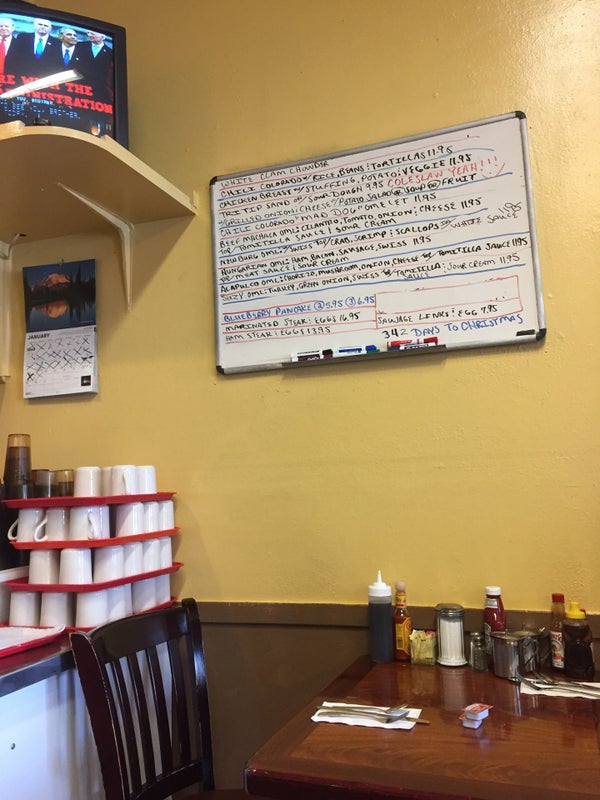 RE WITH THE
MINISTRATION
JANUARY
WHITE CLAM CHOWDER
CHILI COLORADO W/ RICE, BEANS & TORTILLAS 11.95
CHICKEN BREAST W/ STUFFING, POTATO & VEGGIE 11.95
TRITIP SAND ON SOUR DOUGH 9.95 COLESLAW YEAH!!!
W/ GRILLED ONION & CHEESE W/ POTATO SALAD OR SOUP OR FRUIT
CHILI COLORADO & MAD DOG OMELET 11.95
BEEF MACHACA OML & CILANTRO, TOMATO, ONION & CHEESE 11.95
TOP W/ TOMITILLA SAUCE & SOUR CREAM
NEWBURG OML W/ SWISS TOP W/ CRAB, SCRIMP & SCALLOPS IN WHITE SAUCE 11.95
HUNGARIAN OML & HAM, BACON, SAUSAGE, SWISS 11.95
TOP W/ MEAT SAUCE & SOUR CREAM
CHORIZO, MUSHROOM, ONION, CHEESE TOP W/ TOMITILLA SAUCE 11.95
SUZY OML & TURKEY, GREEN ONION, SWISS TOP W/ TOMITILLA SAUCE & SOUR CREAM 11.95
BLUEBERRY PANCAKE (2) 5.95 (3) 6.95
MARINATED STEAK & EGGS 16.95
SAUSAGE LINKS & EGG 7.95
HAM STEAK & EGGS 13.95
342 DAYS TO CHRISTMAS